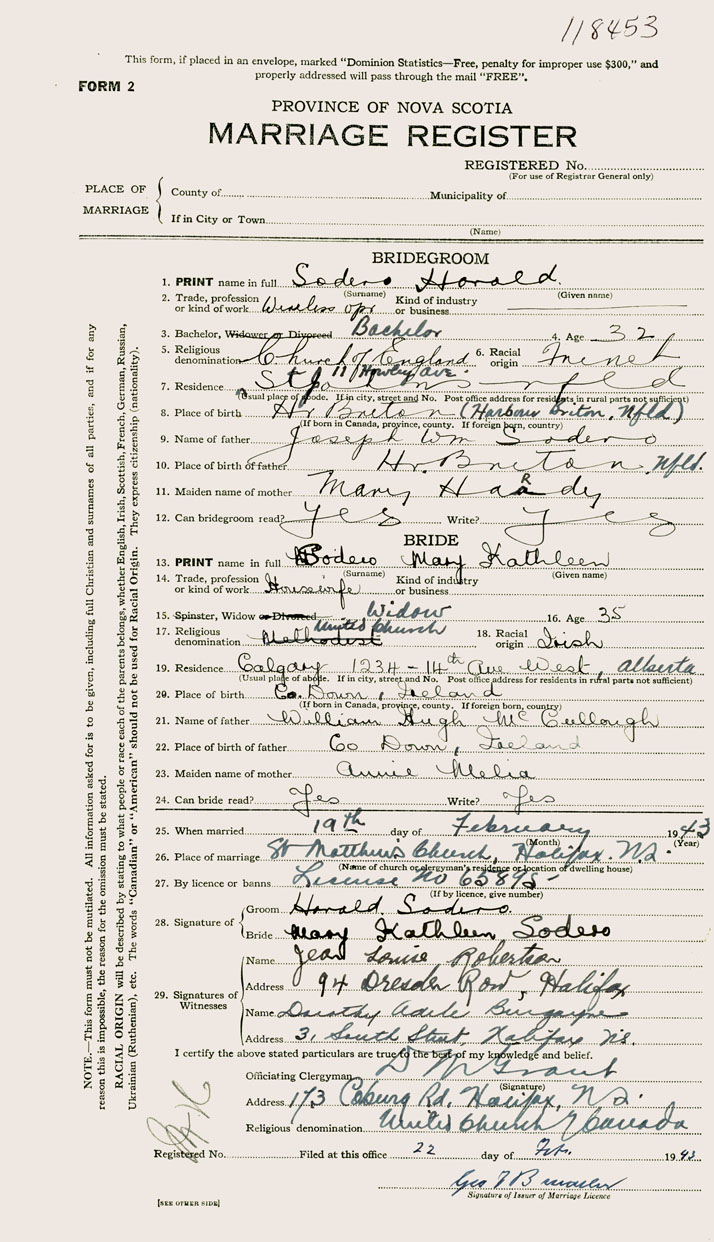 118453
This form, if placed in an envelope, marked "Dominion Statistics—Free, penalty for improper use $300," and
properly addressed will pass through the mail "FREE".
FORM 2
PROVINCE OF NOVA SCOTIA
MARRIAGE REGISTER
REGISTERED No.
(For use of Registrar General only)
PLACE OF MARRIAGE
County of Municipality of
If in City or Town
(Name)
BRIDEGROOM
1. PRINT name in full Sodero Harald
(Surname) (Given name)
2. Trade, profession or kind of work Wireless opr Kind of industry or business
3. Bachelor, Widower or Divorced Bachelor 4. Age 32
5. Religious denomination Church of England 6. Racial origin
11 Howley Ave.
7. Residence St Johns nfld
(Usual place of abode. If in city, street and No. Post office address for residents in rural parts not sufficient)
8. Place of birth Hr Breton (Harbour Briton, Nfld)
(If born in Canada, province, county. If foreign born, country)
9. Name of father Joseph Wm Sodero
10. Place of birth of father Hr. Breton, Nfld.
11. Maiden name of mother Mary Hardy
12. Can bridegroom read? Yes Write? Yes
BRIDE
13. PRINT name in full Sodero Mary Kathleen
(Surname) (Given name)
14. Trade, profession or kind of work Housewife Kind of industry or business
15. Spinster, Widow or Divorced Widow 16. Age 35
17. Religious denomination Methodist United Church 18. Racial origin Irish
19. Residence Calgary 1234-14th Ave West, Alberta
(Usual place of abode. If in city, street and No. Post office address for residents in rural parts not sufficient)
20. Place of birth Co. Down, Ireland
(If born in Canada, province, county. If foreign born, country)
21. Name of father William Hugh McCullough
22. Place of birth of father Co Down, Ireland
23. Maiden name of mother Annie Melia
24. Can bride read? Yes Write? Yes
25. When married 19th day of February 1943
(Month) (Year)
26. Place of marriage St Matthew's Church, Halifax. N.S.
(Name of church or clergyman's residence or location of dwelling house)
27. By licence or banns License No 65895
(If by licence, give number)
28. Signature of
Groom Harald Sodero
Bride Mary Kathleen Sodero
29. Signatures of Witnesses
Name Jean Louise Robertson
Address 94 Dresden Row, Halifax
Name Dorothy Adele Burgoyne
Address 31 South Street, Halifax N.S.
I certify the above stated particulars are true to the best of my knowledge and belief.
Officiating Clergyman Grant
(Signature)
Address 173 Coburg Rd, Halifax, N.S.
Religious denomination United Church of Canada
Registered No. Filed at this office 22 day of Feb. 1943
Geo
Signature of Issuer of Marriage Licence
[SEE OTHER SIDE]
NOTE.—This form must not be mutilated. All information asked for is to be given, including full Christian and surnames of all parties, and if for any
reason this is impossible, the reason for the omission must be stated.
RACIAL ORIGIN will be described by stating to what people or race each of the parents belongs, whether English, Irish, Scottish, French, German, Russian,
Ukrainian (Ruthenian), etc. The words "Canadian" or "American" should not be used for Racial Origin. They express citizenship (nationality).